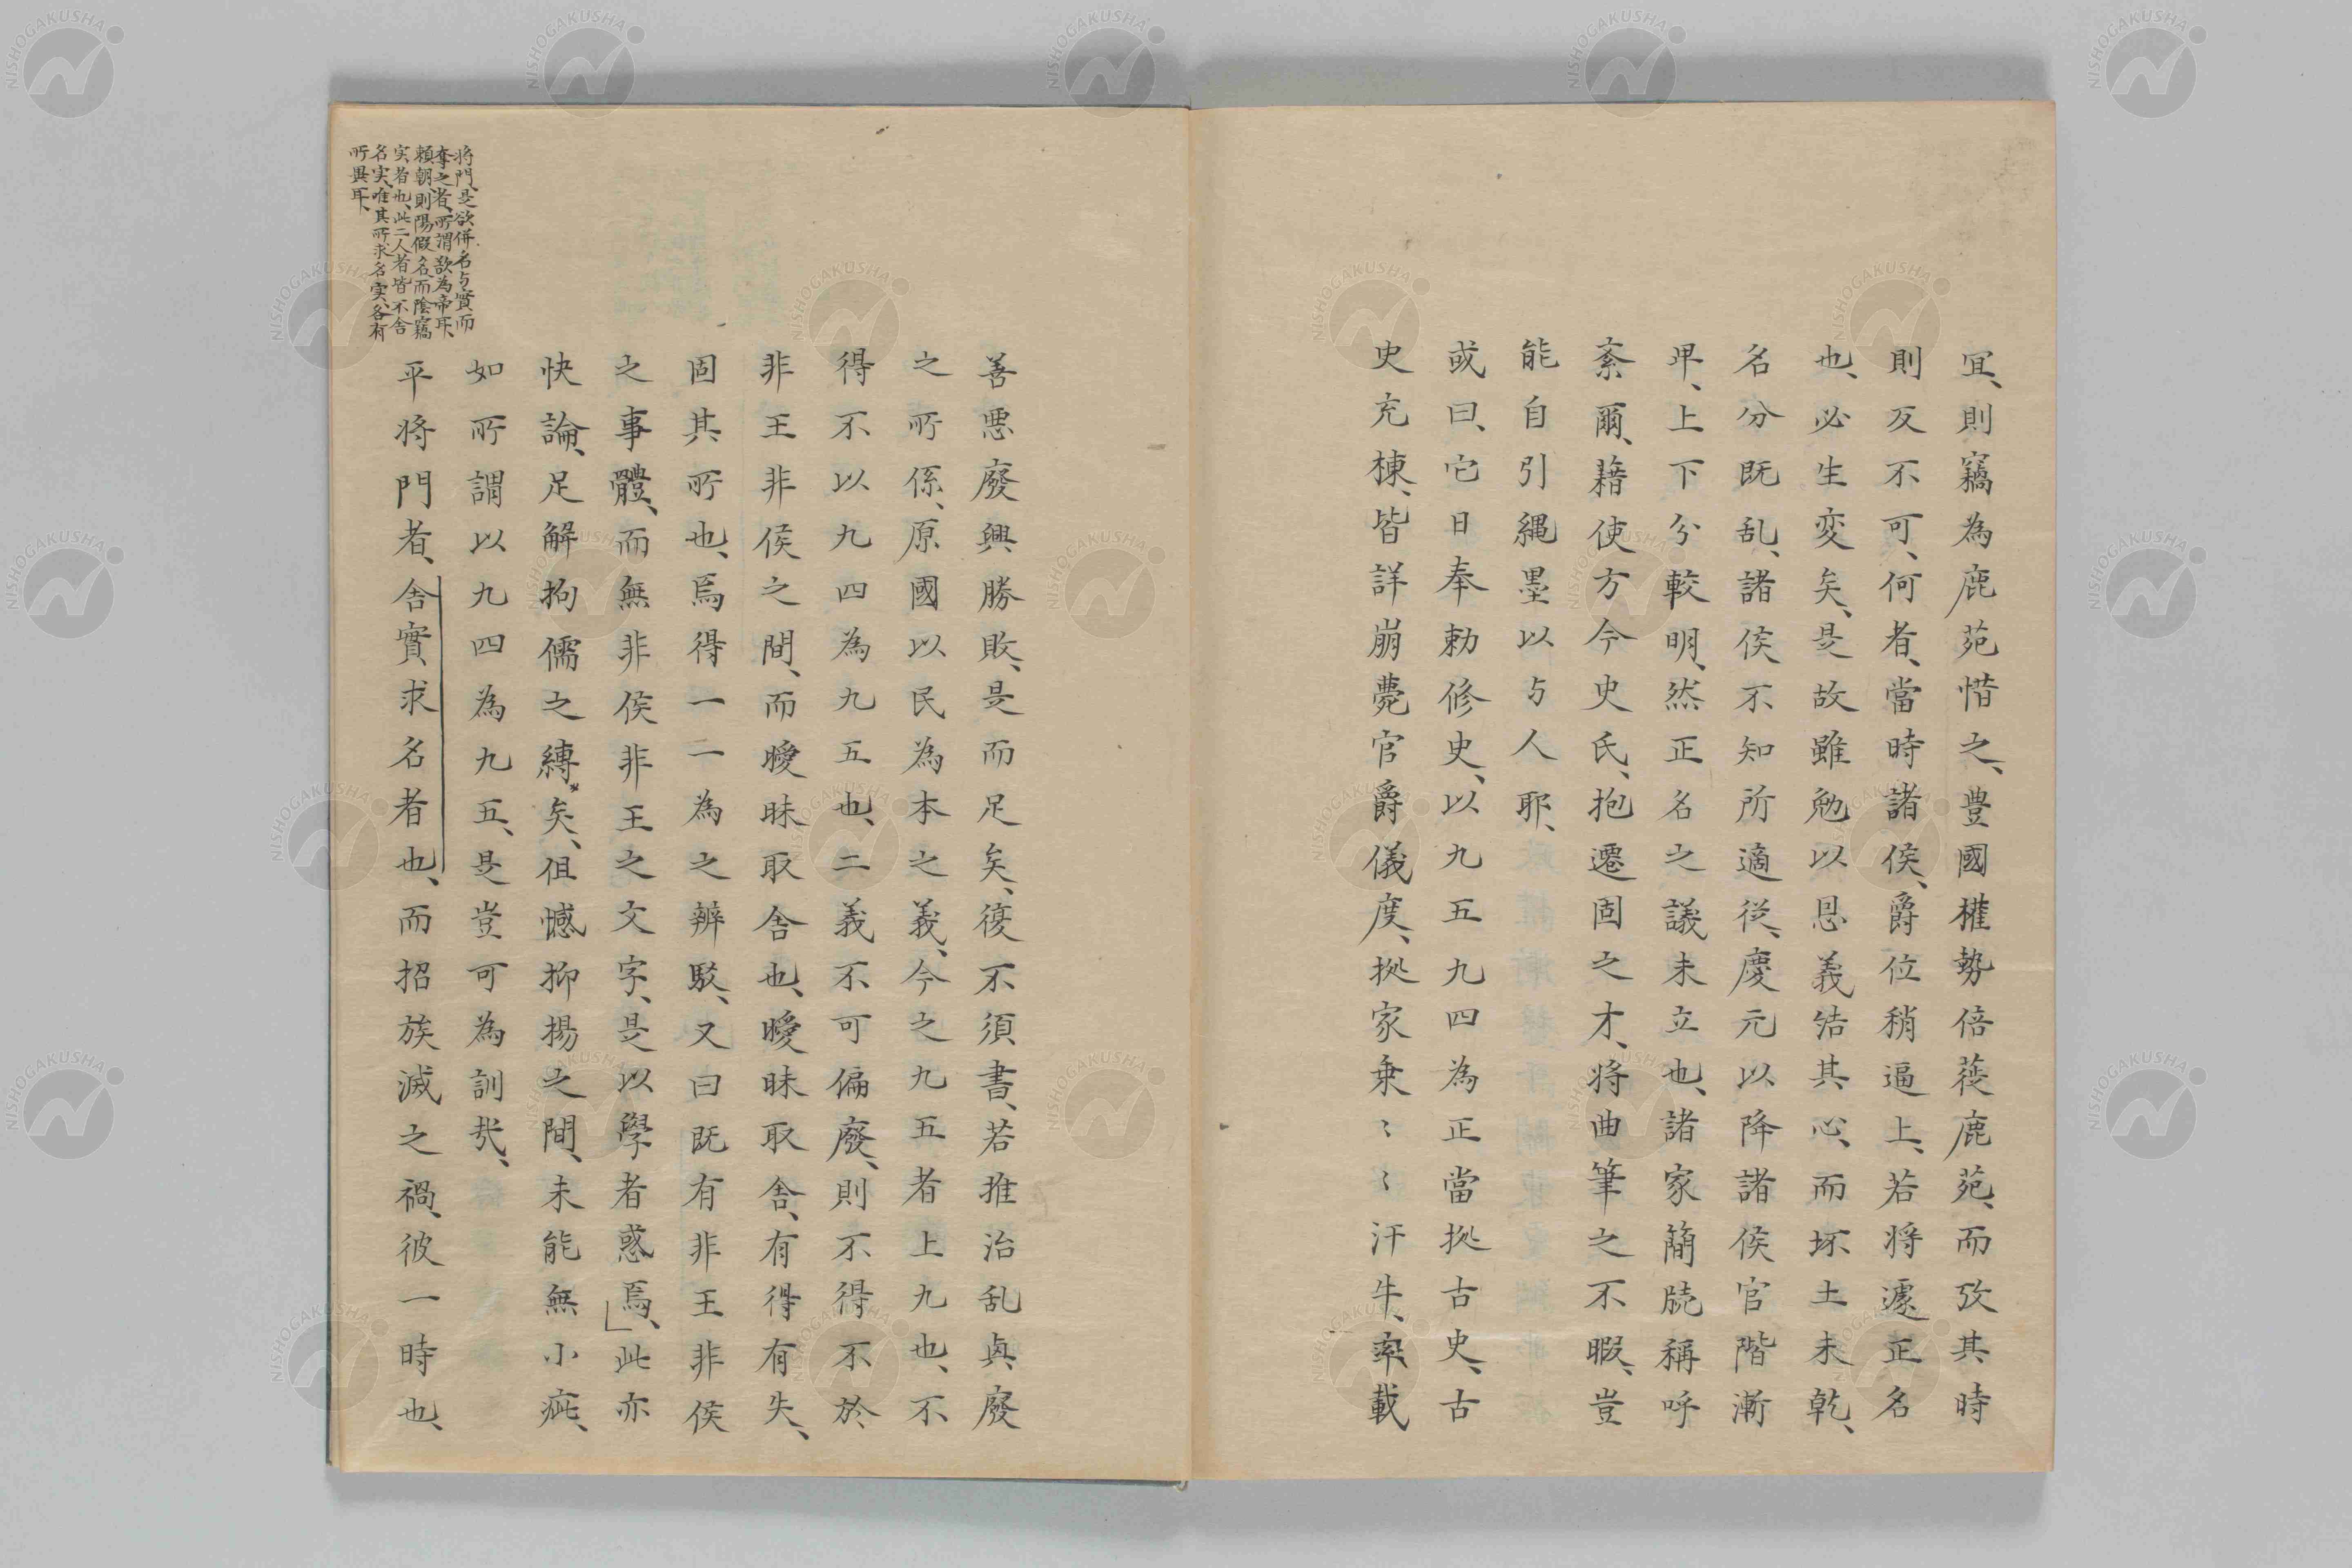 冝、則竊為鹿苑惜之、豊國權勢倍蓰鹿苑、而攷其時
則反不可、何者、當時諸侯、爵位稍逼上、若将遽正名
也、必生変矣、是故雖勉以恩義結其心、而坏土未乾、
名分既乱、諸侯不知所適從、慶元以降諸侯官階漸
卑、上下分較明、然正名之議未立也、諸家簡牘稱呼
紊爾、藉使方今史氏、抱遷固之才、将曲筆之不暇、豈
能自引縄墨以与人耶、
或曰、它日奉勅修史、以九五九四為正當拠古史、古
史充棟、皆詳崩薨官爵儀度、拠家乗〻〻汗牛、率載
善悪廢興勝敗、是而足矣、復不須書、若推治乱眞廢
之所係、原國以民為本之義、今之九五者上九也、不
得不以九四為九五也、二義不可偏廢、則不得不於
非王非侯之間、而曖昧取舎也、曖昧取舎、有得有失、
固其所也、焉得一一為之辨駁、又曰既有非王非侯
之事體、而無非侯非王之文字、是以學者惑焉、」此亦
快論、足解拘儒之縛矣、但憾抑揚之間、未能無小疵、
如所謂以九四為九五、是豈可為訓哉、
平将門者、舎實求名者也、而招族滅之禍、彼一時也、
将門、是欲併名与實而
奪之者、所謂欲為帝耳、
頼朝則陽假名而陰竊
実者也、此二人者皆不舎
名実、唯其所求名実、各有
所異耳、
NISHOGAKUSHA